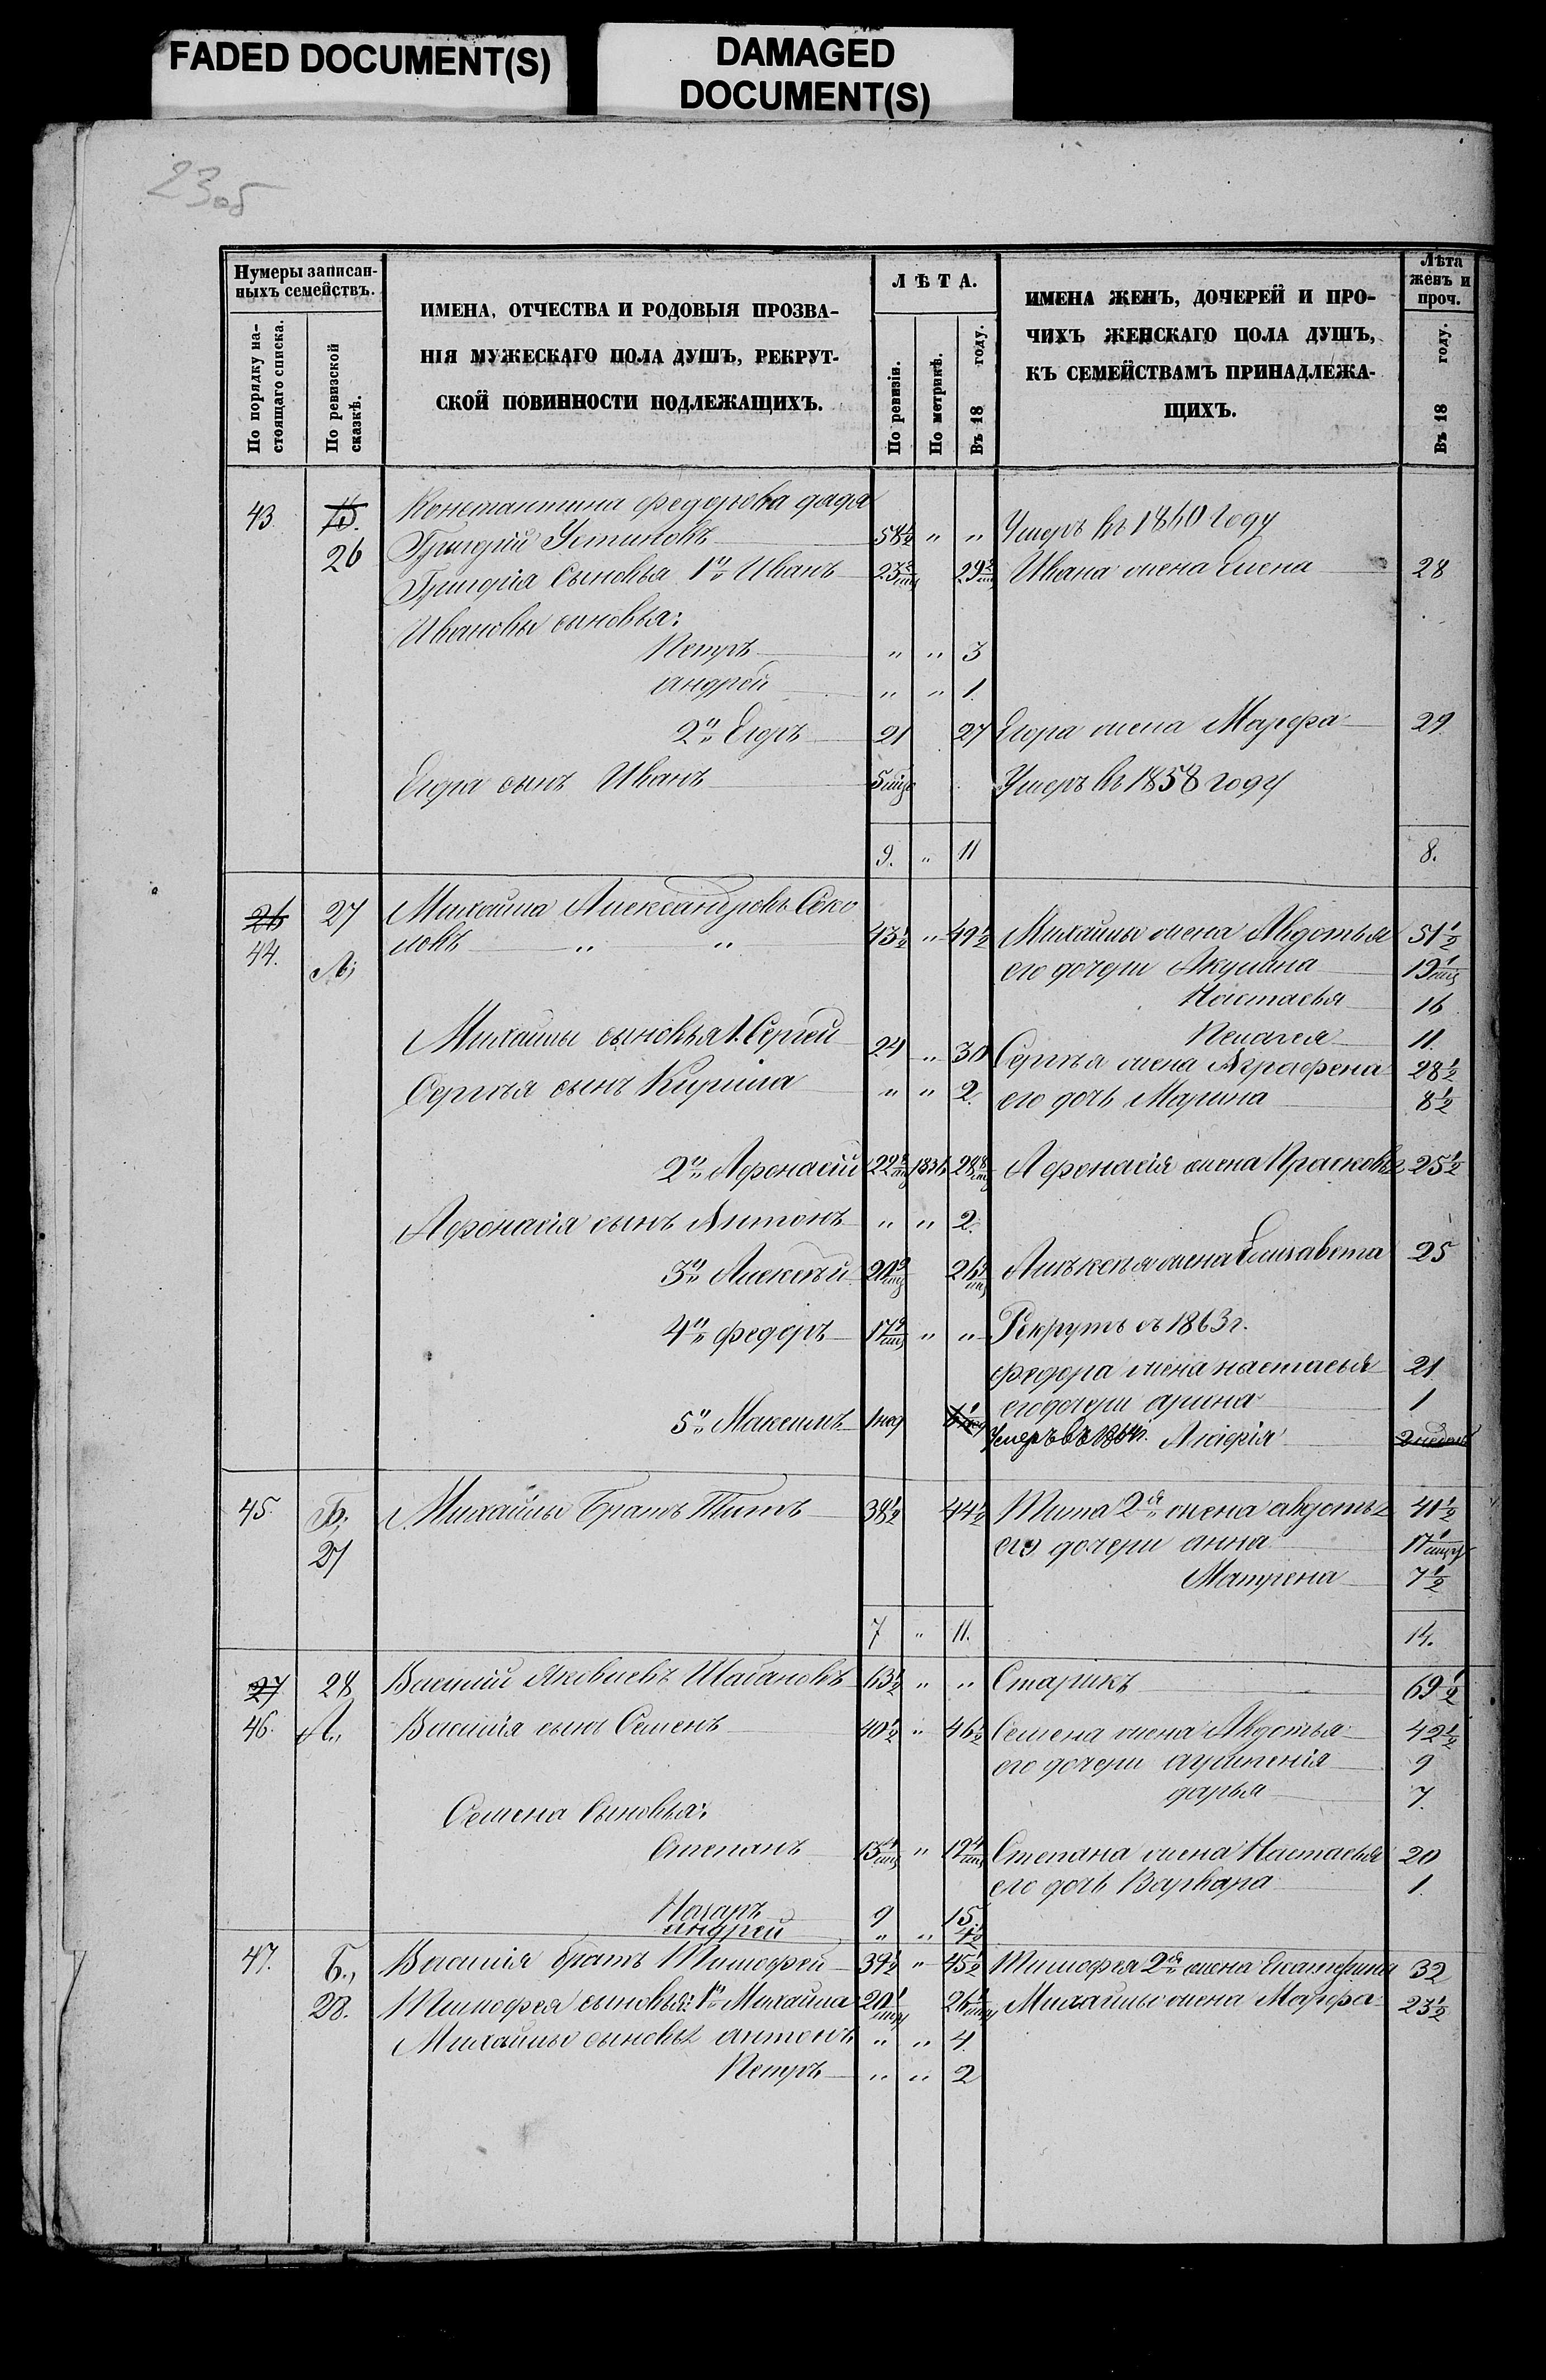 FADED DOCUMENT(S)
DAMAGED
DOCUMENT(S)
23об
Нумеры записан-
ныхъ семействъ.
По порядку на-
стоящаго списка.
По ревизской
сказкѣ.
ИМЕНА, ОТЧЕСТВА И РОДОВЫЯ ПРОЗВА-
НІЯ МУЖЕСКАГО ПОЛА ДУШЪ, РЕКРУТ-
СКОЙ ПОВИННОСТИ ПОДЛЕЖАЩИХЪ.
ЛѢТА.
По ревизіи.
По метрикѣ.
Въ 18 году.
ИМЕНА ЖЕНЪ, ДОЧЕРЕЙ И ПРО-
ЧИХЪ ЖЕНСКАГО ПОЛА ДУШЪ,
КЪ СЕМЕЙСТВАМЪ ПРИНАДЛЕЖА-
ЩИХЪ.
Лѣта
женъ и
проч.
Въ 18 году.
43. Константина федорова дядя
26 Григорій Устиновъ 58½ " " Умеръ въ 1860 году
Григорія Сыновья 1й Иванъ 23 29 Ивана жена Елена 28
Ивановы сыновья:
Петръ " " 3
андрей " " 1
2й Егоръ 21 27 Егора жена Марфа 29
Егора сынъ Иванъ 5 Умеръ въ 1858 году
9. " 11 8.
26 27 Михайла Александровъ Соко
44. А, ловъ " " 43½ " 49½ Михайлы жена Авдотья 51½
его дочери Акулина 19
Настасья 16
Пелагея 11.
Михайлы сыновья 1. Сергей 24 " 30 Сергѣя жена Аграфена 28½
Сергѣя сынъ Кирила " " 2. его дочь Марина 8½
2й Афонасій 22 1836 28 Афонасія жена Прасковья 25½
Афонасія сынъ Антонъ " " 2.
3й Алексѣй 20 26 Алѣксѣя жена Елизавета 25
4й федоръ 17 " " Рекрутъ съ 1863 г.
федора жена настасья 21
его дочери арина 1
5й Максимъ 1 Умеръ въ 1864 г.
45. Б, Михайлы братъ Титъ 38½ 44½ Тита 2я жена авдотья 41½
27 его дочери анна 17
Матрена 7½
7 " 11. 14.
27 28 Василій Яковлевъ 63½ " " Старикъ 69½
46. А., Василія сынъ Семенъ 40½ " 46½ Семена жена Авдотья 42½
его дочери 9
дарья 7.
Семена Сыновья:
Степанъ 13 " 19 Степана жена Настасья 20
его дочь Варвара 1.
Назаръ 9 15.
андрей " " 4½
47. Б., Василія братъ Тимофей 39½ " 45½ Тимофея 2я жена Екатерина 32
28. Тимофея сыновья: 1й Михайла 20 26 Михайлы жена Марфа 23½
Михайлы сыновья антонъ " " 4
Петръ " " 2